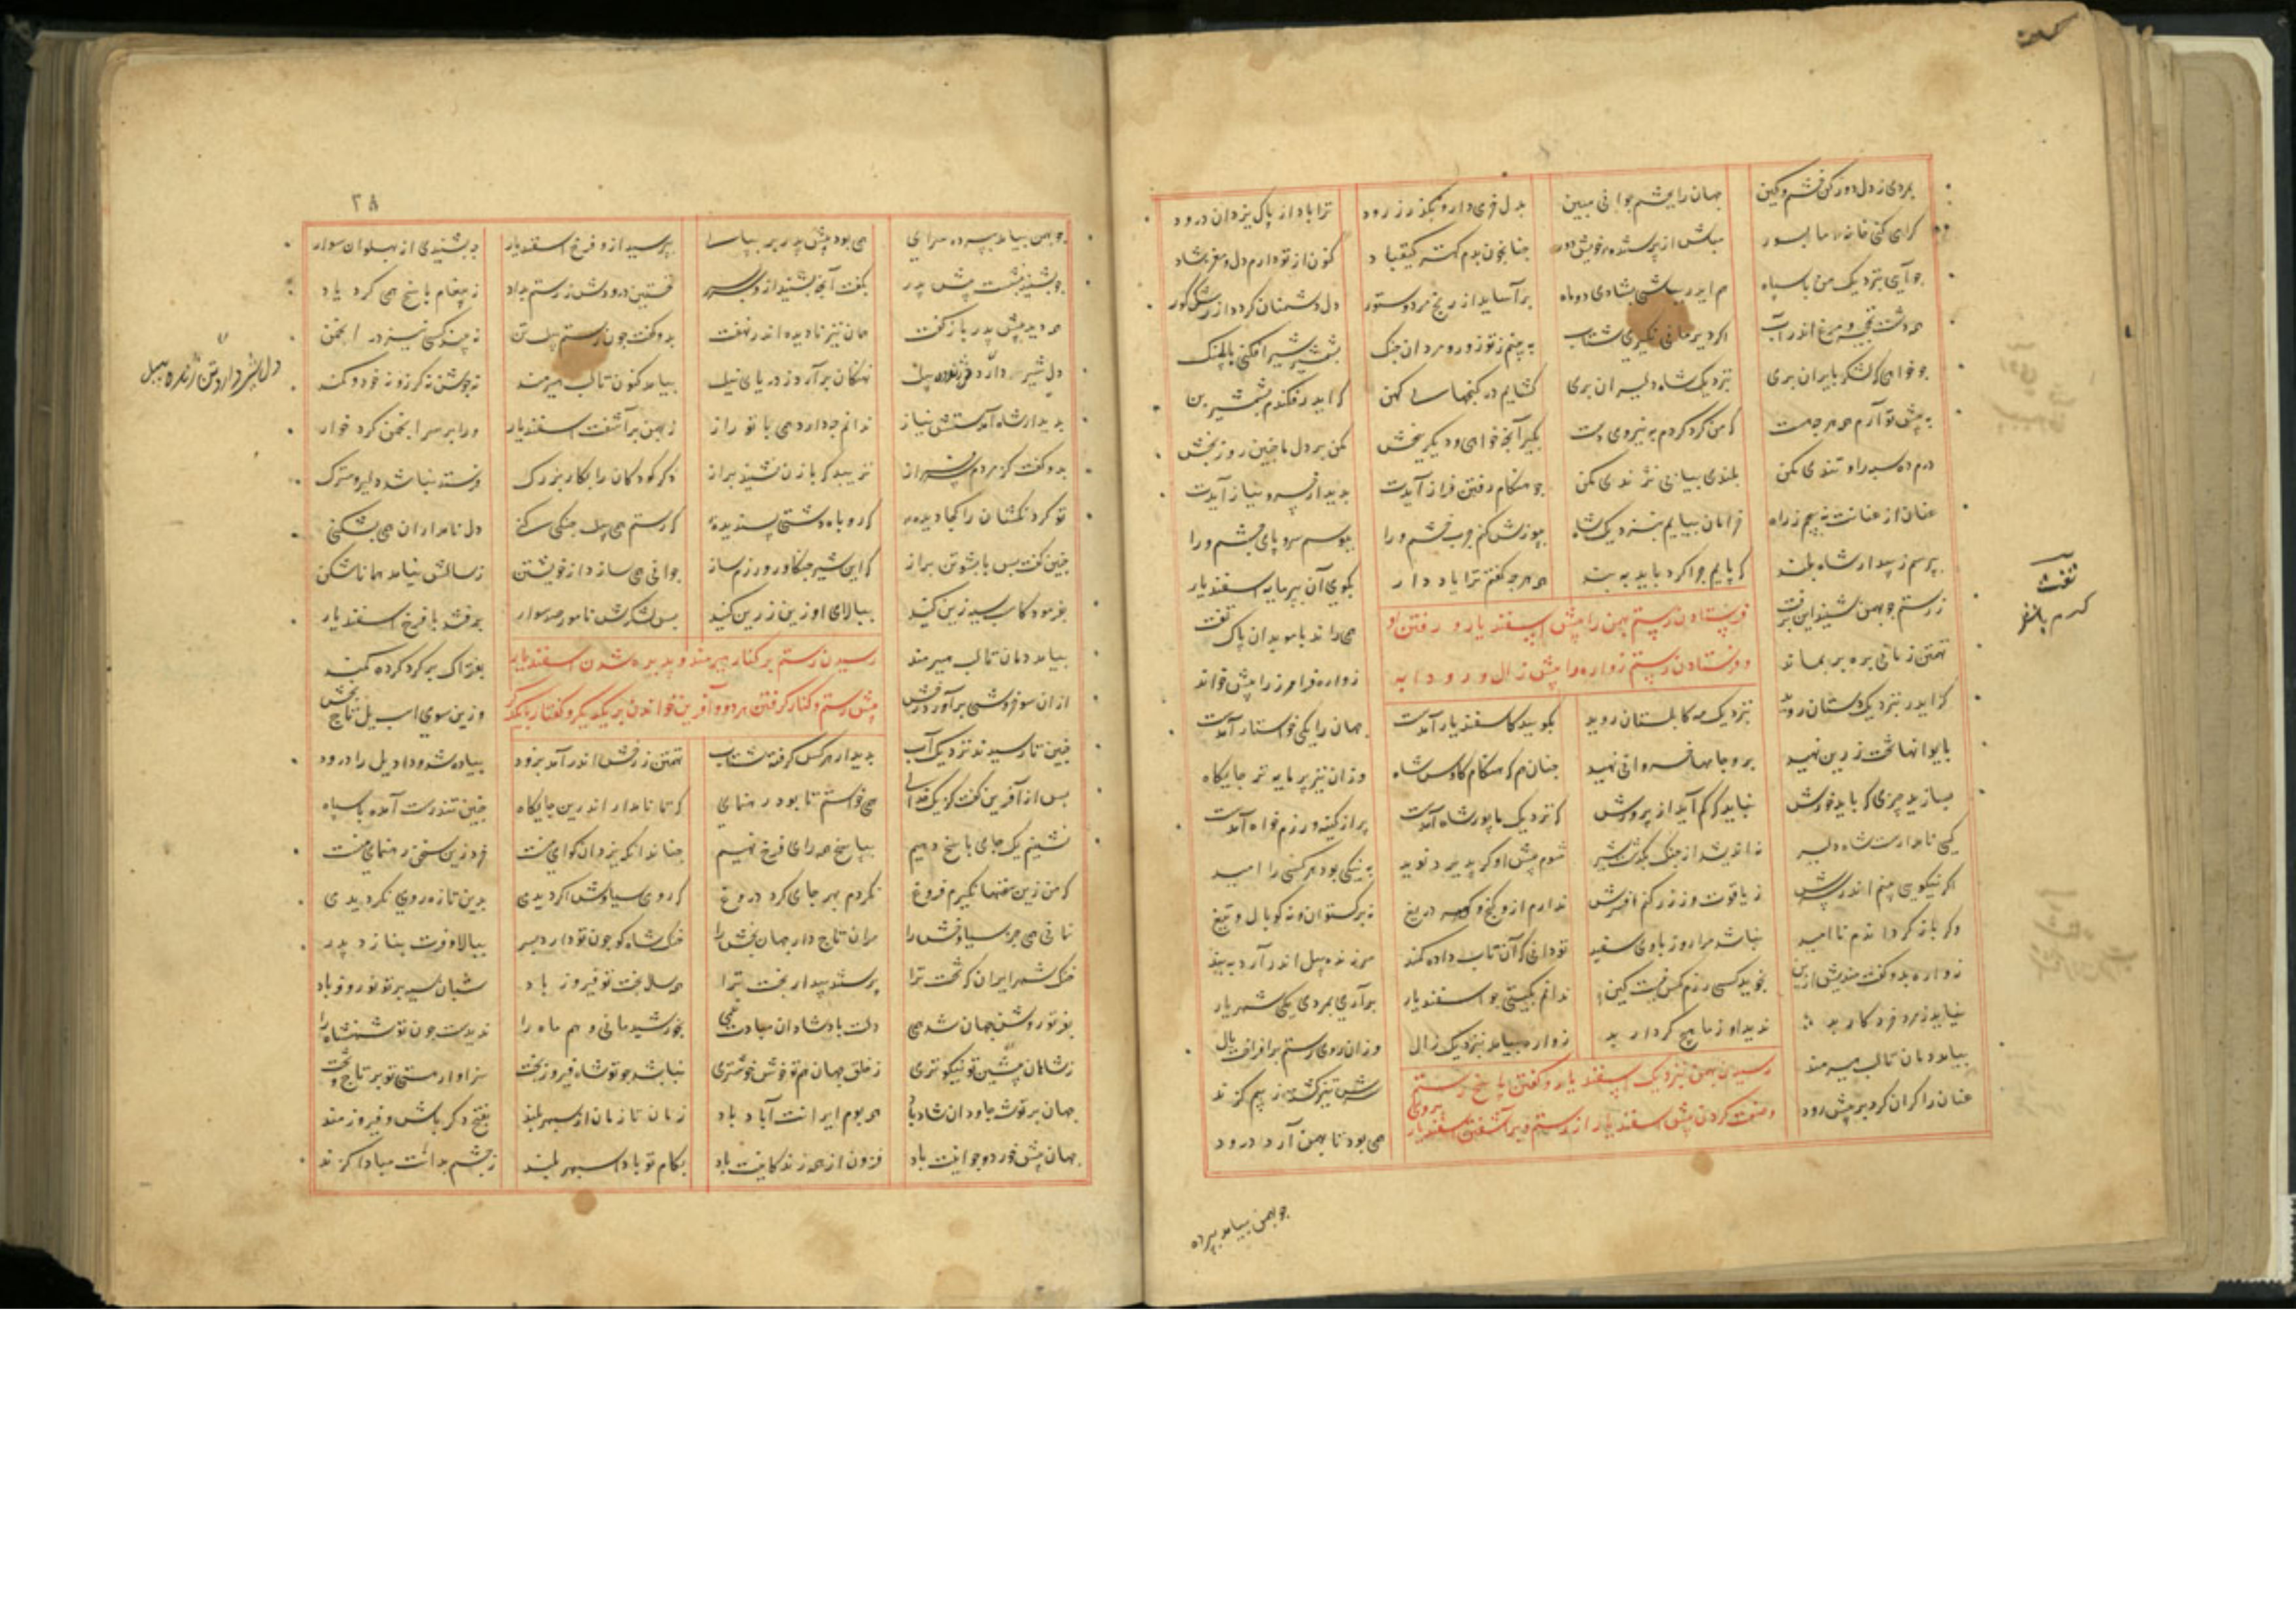 بمردی ز دل دور کن خشم و کین جهان را بچشم جوانی مبین بدل خرمی دار و بگذر ز رود ترا باد از پاک یزدان درود
گرامی کنی خانه ما بسور مباش از پرستنده خویش دور چنا چون بدم کهتر کیقباد کنون از تو دارم دل و مغز شاد
چو آیی نزدیک من با سپاه هم ایدر بباشی بشادی دو ماه برآساید از رنج مرد و ستور دل دشمنان گردد از رشک کور
همه دشت نخچیر و مرغ اندر آب اگر دیر مانی نگیری شتاب به بینم ز تو زور مردان جنک بشمشیر شیر افکنی یا پلنک
چو خواهی که لشکر بایران بری نزدیک شاه دلیران بری گشایم در گنجهای کهن که ایدر فکندم بشمشیر بن
به پیش تو آرم همه هر چه هست که من گرد کردم به نیروی دست بگیر آنچه خواهی و دیگر ببخش مکن بر دل ما چنین روز بخش
درم ده سپه را و تندی مکن بلندی بیابی نژندی مکن چو هنگام رفتن فراز آیدت بدیدار خسرو نیاز آیدت
عنان از عنانت نه پیچم ز راه خرامان بیایم بنزدیک شاه بپوزش کنم چرب خشم ورا ببوسم سر و پای و چشم ورا
بپرسم ز بیدار شاه بلند که پایم چرا کرد باید به بند همه هر چه گفتم ترا یاد دار بگوی آن بپرمایه اسفندیار
ز رستم چو بهمن شنید این برفت همی راند با موبدان پاک تفت
فرستادن رستم بهمن را پیش اسفندیار و رفتن او
و فرستادن رستم زواره را پیش زال و رودابه
تهمتن زمانی بره بر بماند زواره فرامرز را پیش خواند
کز ایدر نزدیک دستان روید نزدیک مه کابلستان روید بگویید کاسفندیار آمدست جهان را یکی خواستار آمدست
بایوانها تخت زرین نهید برو جامهای خسروانی نهید چنان هم که هنگام کاوس شاه وزان نیز پرمایه تر جایگاه
بسازید چیزی که باید خورش نباید که کم آید از پرورش که نزدیک ما پور شاه آمدست پر از کینه و رزم خواه آمدست
کیی نامدارست شاه دلیر نه اندیشد از جنک یکدشت شیر شوم پیش او گر پذیرد نوید به نیکی بود هر کسی را امید
اگر نیکویی بینم اندر سرش ز یاقوت و زر کنم افسرش ندارم ازو گنج و گوهر دریغ نه برگستوان و نه کوپال و تیغ
وگر باز گرداندم ناامید نباشد مرا روز با وی سفید تو دانی که آن تاب داده کمند سر زنده پیل اندر آرد به بند
زواره بدو گفت مندیش ازین نجوید کسی رزم کش نیست کین ندانم بگیتی چو اسفندیار برآی بمردی یکی شهریار
نیاید ز مرد خرد کار بد ندید او ز ما هیچ کردار بد زواره بیامد نزدیک زال وزان روی رستم برافراخت یال
بیامد دمان تا لب هیرمند سرش تیز گشته ز بیم گزند
رسیدن بهمن نزدیک اسفندیار و گفتن پاسخ رستم
وصفت کردن پیش اسفندیار از رستم و برآشفتن اسفندیار بروی
عنان را گران کرد بر پیش رود همی بود تا بهمن آرد درود
چو بهمن بیامد بپرده
۳۸
چو بهمن بیامد بپرده سرای همی بود پیش پدر بر بپای بپرسید ازو فرخ اسفندیار چه بشنیدی از پهلوان سوار
چو بشنید بنشست پیش پدر بگفت آنچه بشنید ازو سربسر نخستین درودش ز رستم بداد ز پیغام پاسخ همی کرد یاد
همه دیده پیش پدر باز گفت همان نیز نادیده اندر نهفت بدو گفت چون رستم پیل تن نه بیند کسی نیز در انجمن
دل شیر دارد تن ژنده پیل نهنگان برآرد ز دریای نیل بیامد کنون تا لب هیرمند نه جوشن نه گرز و نه خود و کمند
دل شیر دارد تن ژنده پیل
بدیدار شاه آمدستش نیاز ندانم چه دارد همی با تو راز ز بهمن برآشفت اسفندیار ورا بر سر انجمن کرد خوار
بدو گفت کز مردم سرفراز نزیبد که با زن نشیند براز دگر کودکان را بکار بزرک فرستد نباشد دلیر و سترک
تو گردنکشان را کجا دیده که روباه دشتی پسندیده که رستم همی پیل جنگی کنی دل نامداران همی بشکنی
چنین گفت پس با پشوتن براز که این شیر جنگاور رزم ساز جوانی همی سازد از خویشتن ز سالش نیامد همانا شکن
بفرمود کاسب سیه زین کنید ببالای او زین زرین کنید پس از لشکرش نامور صد سوار برفتند با فرخ اسفندیار
بیامد دمان تا لب هیرمند بفتراک بر گرد کرده کمند
رسیدن رستم بر کنار هیرمند و پذیره شدن اسفندیار
پیش رستم و کنار گرفتن هر دو و آفرین خواندن بر یکدیگر و گفتار با یکدیگر
ازان سو خروشی برآورد رخش وزین سوی اسب یل تاج بخش
چنین تا رسیدند نزدیک آب بدیدار هر کس گرفته شتاب تهمتن ز رخش اندر آمد فرود پیاده شد و داد یل را درود
پس از آفرین گفت کز یک خدای همی خواستم تا بود رهنمای که تا نامدار اندرین جایگاه چنین تندرست آمده با سپاه
نشینیم یک جای و پاسخ دهیم بپاسخ همه رای فرخ نهیم چنان دانکه یزدان گوای منست خرد زین سخن رهنمای منست
که من زین سخنها نگیرم فروغ نگردم بهر جای گرد دروغ که روی سیاوش اگر دیدی بدین تازه رویی نگردیدی
نمانی همی جز سیاوخش را مران تاج دار جهان بخش را خنک شاه کو چون تو دارد پسر ببالا و فرت بنازد پدر
خنک شهر ایران که تخت ترا پرستند بیدار بخت ترا همه ساله بخت تو فیروز باد شبان سیه بر تو نوروز باد
بفر تو روشن جهان شد همی دلت باد شادان مبادت غمی بخورشید مانی و هم ماه را ندیدست چون تو شهنشاه را
ز شاهان پیشین تو نیکوتری ز خلق جهان هم تو خوشتری نباشد چو تو شاه فیروزبخت سزاوار هستی تو بر تاج و تخت
جهان بر تو شه جاودان شاد باد همه بوم ایرانت آباد باد زمان تا زمان از سپهر بلند بفتح دگر باش و فیروزمند
جهان پیش خورد و جوانیت باد فزون از همه زندگانیت باد بکام تو بادا سپهر بلند ز چشم بدانت مبادا گزند